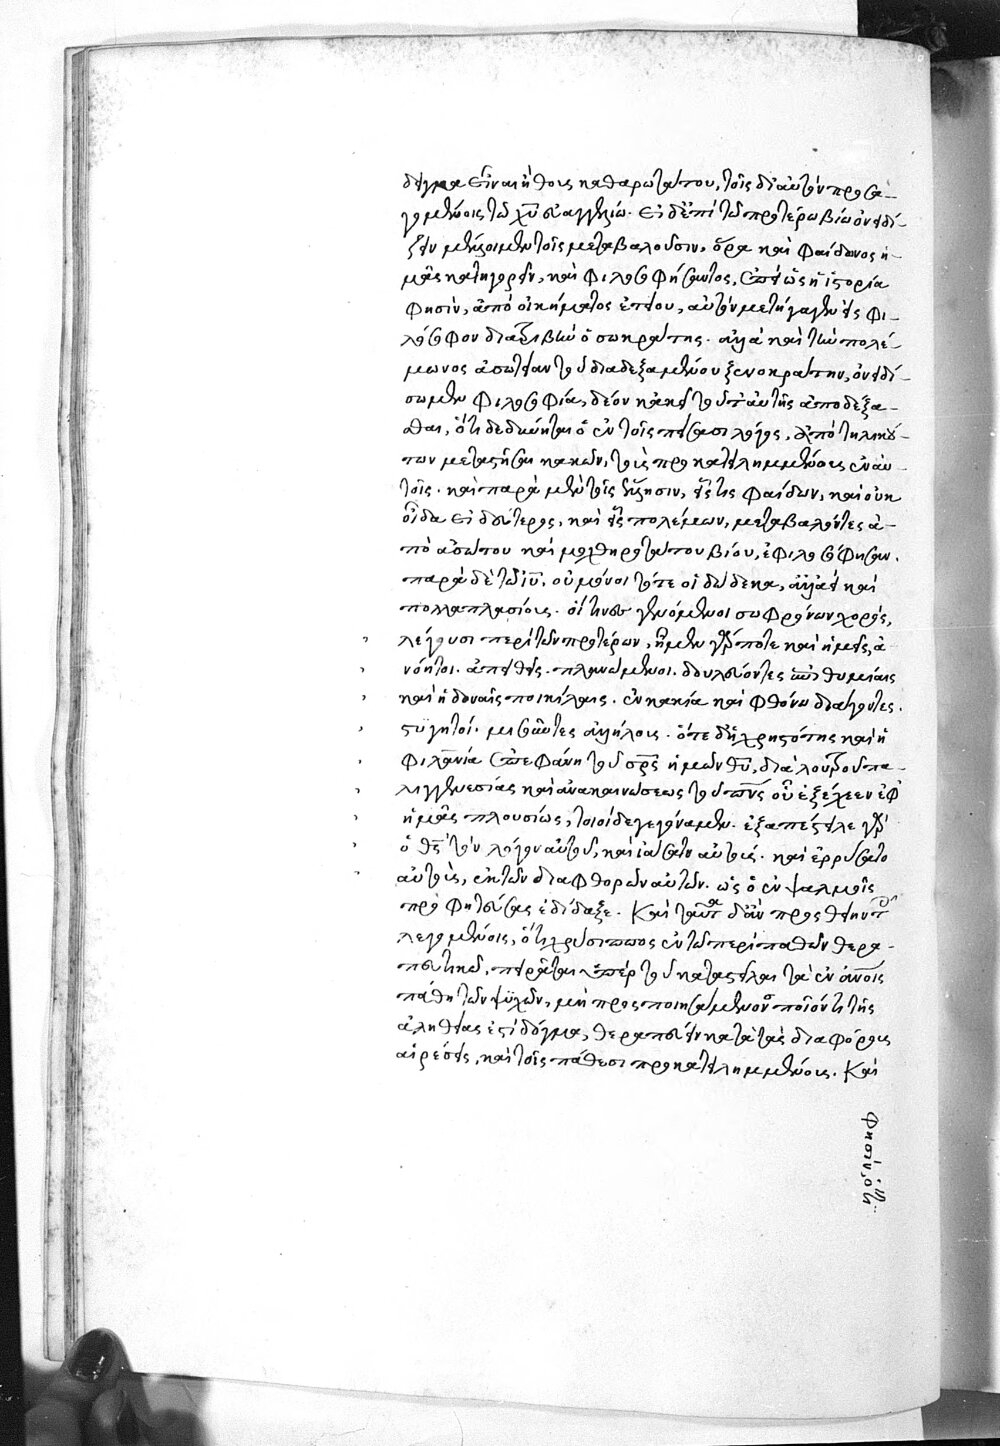 δειγμα εἶναι ἤθους καθαρωτάτου, τοῖς δι' αὐτὸν προσα-
γομένοις τῷ χῦ εὐαγγελίῳ. Εἰ δ' ἐπὶ τῷ προτέρῳ βίῳ ὀνειδί-
ζειν μέλλοιμεν τοῖς μεταβαλοῦσιν, ὥρα καὶ Φαίδωνος ἡ-
μᾶς κατηγορεῖν, καὶ φιλοσοφήσαντος, ἐπεὶ ὡς ἡ ἱστορία
φησὶν, ἀπὸ οἰκήματος ἐτείου, αὐτὸν μετήγαγεν εἰς φι-
λόσοφον διατριβὴν ὁ σωκράτης. ἀλλὰ καὶ τὴν πολέ-
μωνος ἀσωτείαν τοῦ διαδεξαμένου ξενοκράτην, ὀνειδί-
σωμεν φιλοσοφίᾳ, δέον κἀκεῖ τοῦτ' αὐτῆς ἀποδέξα-
σθαι, ὅτι δεδύνηται ὁ ἐν τοῖς πείσασι λόγος, ἀπὸ τηλικού-
των μεταστῆσαι κακῶν, τοὺς προκατειλημμένους ἐν αὐ-
τοῖς. καὶ παρὰ μὲν τοῖς ἕλλησιν, εἷς τις Φαίδων, καὶ οὐκ
οἶδα εἰ δεύτερος, καὶ εἷς πολέμων, μεταβαλόντες ἀ-
πὸ ἀσώτου καὶ μοχθηροτάτου βίου, ἐφιλοσόφησαν.
παρὰ δὲ τῷ ἰῦ, οὐ μόνοι τότε οἱ δώδεκα, ἀλλ' ἀεὶ καὶ
πολλαπλασίους. οἵ τινες γενόμενοι σωφρόνων χορὸς,
λέγουσι περὶ τῶν προτέρων, ἦμεν γάρ ποτε καὶ ἡμεῖς, ἀ-
νόητοι. ἀπειθεῖς. πλανώμενοι. δουλεύοντες ἐπιθυμίαις
καὶ ἡδοναῖς ποικίλαις. ἐν κακίᾳ καὶ φθόνῳ διάγοντες.
στυγητοί. μισοῦντες ἀλλήλους. ὅτε δὲ ἡ χρηστότης καὶ ἡ
φιλανία ἐπεφάνη τοῦ σρς ἡμῶν θῦ, διὰ λουτροῦ πα-
λιγγενεσίας καὶ ἀνακαινώσεως τοῦ πνς οὗ ἐξέχεεν ἐφ'
ἡμᾶς πλουσίως, τοιοίδε γεγόναμεν. ἐξαπέστειλε γὰρ
ὁ θς τὸν λόγον αὐτοῦ, καὶ ἰάσατο αὐτούς. καὶ ἐρρύσατο
αὐτοὺς, ἐκ τῶν διαφθορῶν αὐτῶν. ὡς ὁ ἐν ψαλμοῖς
προφητεύσας ἐδίδαξε. Καὶ ταῦτα δ' ἂν προσθείην τοῖς
λεγομένοις, ὅτι χρύσιππος ἐν τῷ περὶ παθῶν θερα-
πευτικῷ, πειρᾶται ὑπὲρ τοῦ καταστεῖλαι τὰ ἐν ἀνοις
πάθη τῶν ψυχῶν, μὴ προσποιησάμενος ποῖόν τι τῆς
ἀληθείας ἐστὶ δόγμα, θεραπεύειν κατὰ τὰς διαφόρους
αἱρέσεις, καὶ τοῖς πάθεσι προκατειλημμένους. Καὶ
φησὶν, ὅτι